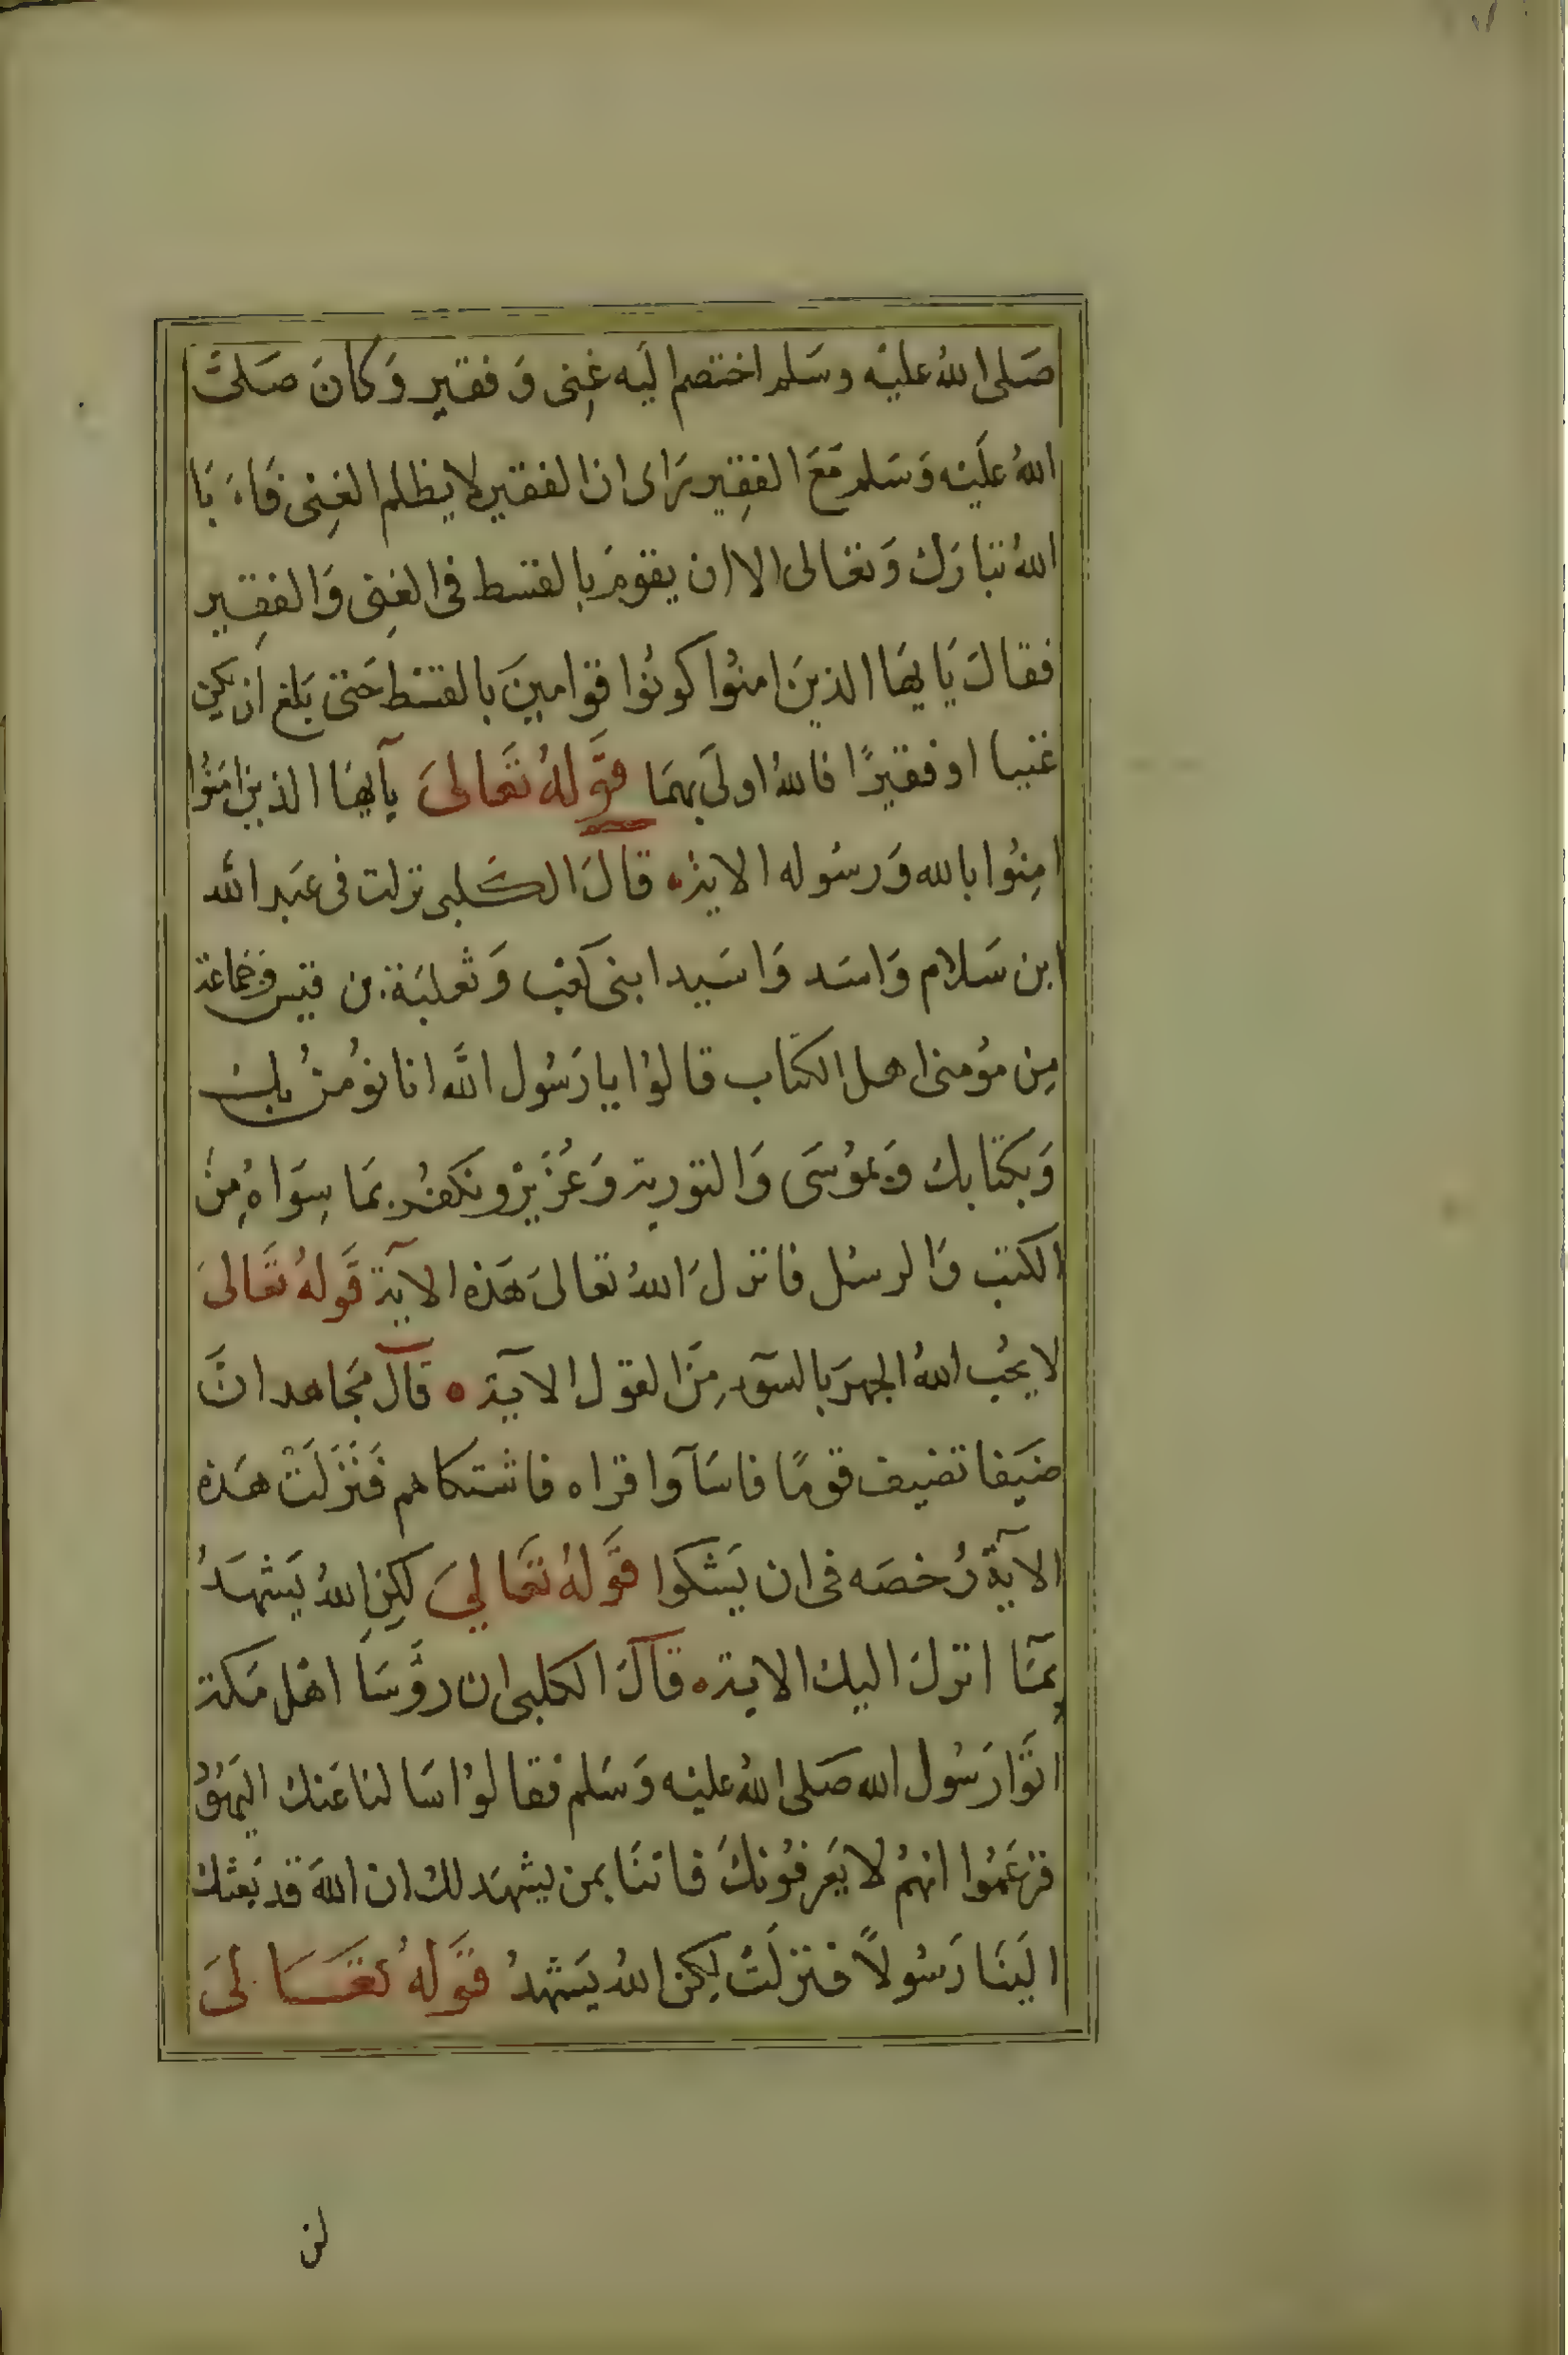 صَلى اللهُ عليْه وسَلم اختصم ليَه غِنى وَ فقير وَكانَ صَلىَّ
اللهُ عَليْه وَسَلم مَعَ الفقِير يرَاى ان الفقير لا يظلم الغِنى فاَ بَا
اللهُ تبَارَك وَتعَالى الا ان يقومَ بالقسط فى الغِنى وَالفقِير
فقالَ يَا يهَا الذينَ امنوُا كونُوا قوامينَ بالقسْط حَتى بَلغ ان يكن
غنيا او فقيرًا فاللهُ اولىَ بهمَا قوَلهُ تعَالىَ يآ ايهَا الذين امَنوُا
امِنُوا بالله وَرسُوله الايَة قالَ الكَلبى نزلت فى عَبد الله
ابن سَلام وَاسَد وَاسَيد ابنى كعْب وَثعلبَة بن قيس وَجَماعة
مِن مؤمنى اهل الكتَاب قالوُا يا رَسُول الله انا نؤمُنُ بك
وَبكتَابك وَبموُسَى وَالتورية وَعُزَيْر وَنكفرُ بمَا سِوَاهُ مِنَ
الكتب وَالرسُل فانزلَ اللهُ تعالىَ هَذه الآيَة قَولهُ تعَالىَ
لا يحُب اللهُ الجهرَ بالسَّوءِ مِنَ القول الآية قالَ مجَاهد انَّ
ضيَفا تضيف قومًا فاسَآوا قراه فاشتكاهم فَنَزَلَتْ هَذه
الآيَة رُخصَه فى ان يَشكوا قوَلهُ تعَالىَ لكِن اللهُ يَشهَدُ
بمَآ انزلَ اليك الايَة قالَ الكلبى ان رؤَسَا اهْل مَكة
اتَوا رَسُول الله صَلى اللهُ عليْه وَسَلم فقالوُا سَالنا عَنك اليَهوُدُ
فزعَمُوا انهمُ لا يَعرفوُنكَ فاتنَا بمن يشهَد لك ان اللهَ قد بَعثك
اليَنَا رَسُولاً فنزلَتْ لكِن اللهُ يَشهدُ قوَلهُ تعَالىَ
لن